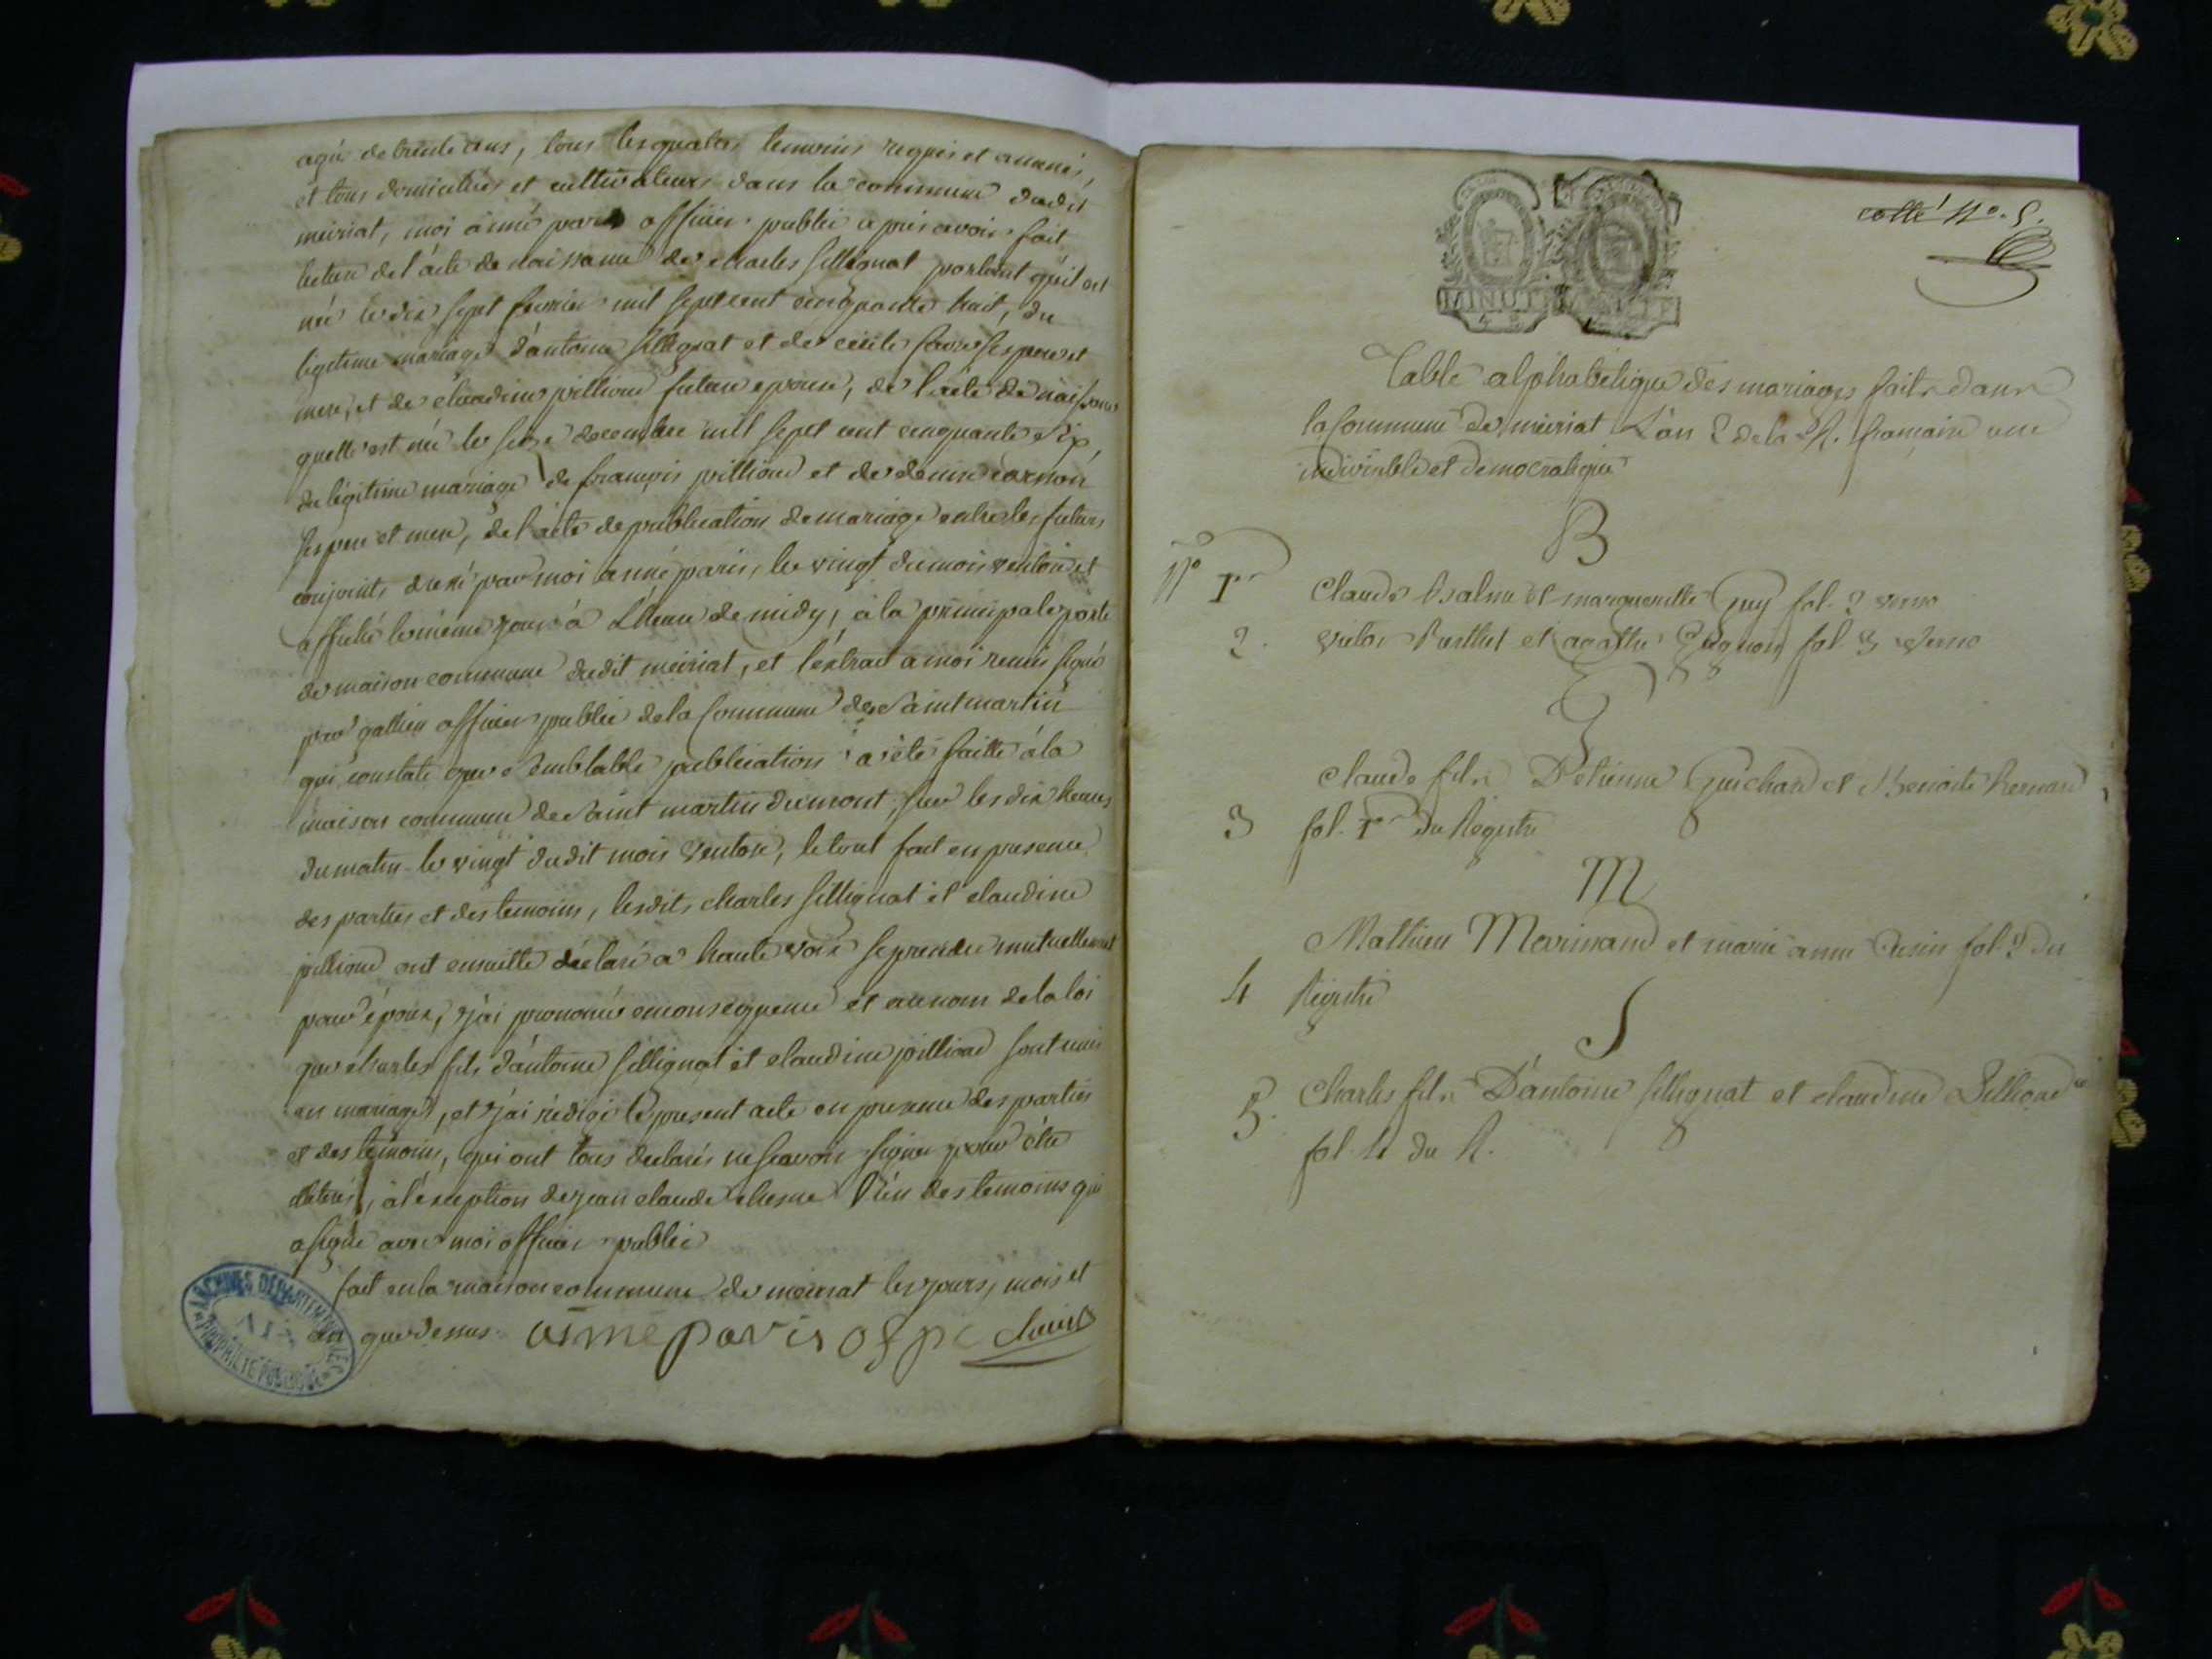 agée de trente ans, tous les quatre temoins requis et amenés,
et tous domiciliés et cultivateurs dans la commune dudit
meiriat, moi aimé paris officier public apres avoir fait
lecture de l'acte de naissance de charles sillignat portant qu'il est
né le dix sept fevrier mil sept cent cinquante huit, du
legitime mariage d'antoine sillignat et de cecile favre ses pere et
mere, et de claudine pillion future epouse, de l'acte de naissance
quelle est née le seize decembre mil sept cent cinquante six,
du légitime mariage de françois pillion et de denise
ses pere et mere, de l'acte de publication de mariage entre les futurs
conjoints dressé par moi aimé paris, le vingt du mois ventose et
affiché le même jour à l'heure de midy, à la principale porte
de maison commune dudit meiriat, et l'extrait a moi remis signé
par gallien officier public de la commune de Saint martin
qui constate que semblable publication a été faitte à la
maison commune de Saint martin du mont, sur les dix heures
du matin le vingt dudit mois ventose, le tout fait en presence
des parties et des temoins, lesdits charles sillignat et claudine
pillion ont ensuitte déclaré a haute voix se prendre mutuellement
pour époux, j'ai prononcé en consequence et au nom de la loi
que charles fils d'antoine sillignat et claudine pillion sont unis
en mariage, et j'ai rédigé le present acte en presence des parties
et des témoins, qui ont tous declarés ne scavoir signer pour être
illiterés, à l'exception de jean claude chesne l'un des temoins qui
a signé avec moi officier public
fait en la maison commune de meiriat les jours, mois et
an que dessus aime paris of pc
ARCHIVES DEPARTEMENTALES
AIN
PROPRIÉTÉ PUBLIQUE
MINUTE
cotté N°. 5.
Table alphabétique des mariages faits dans
la Commune de meiriat L'an 2 de la R. française une
indivisible et democratique
B
N° 1er Claude balme et margueritte Guy fol. 2 verso
2. victor Berthet et agathe fol. 3 verso
G
claude fils D'etienne Guichard et Benoite bernard
3 fol. 1er du Registre
M
Mathieu Morinand et marie anne fol. 2 du
4 Régistre
S
5. Charles fils D'antoine sillignat et claudine Pillion
fol. 4 du R.